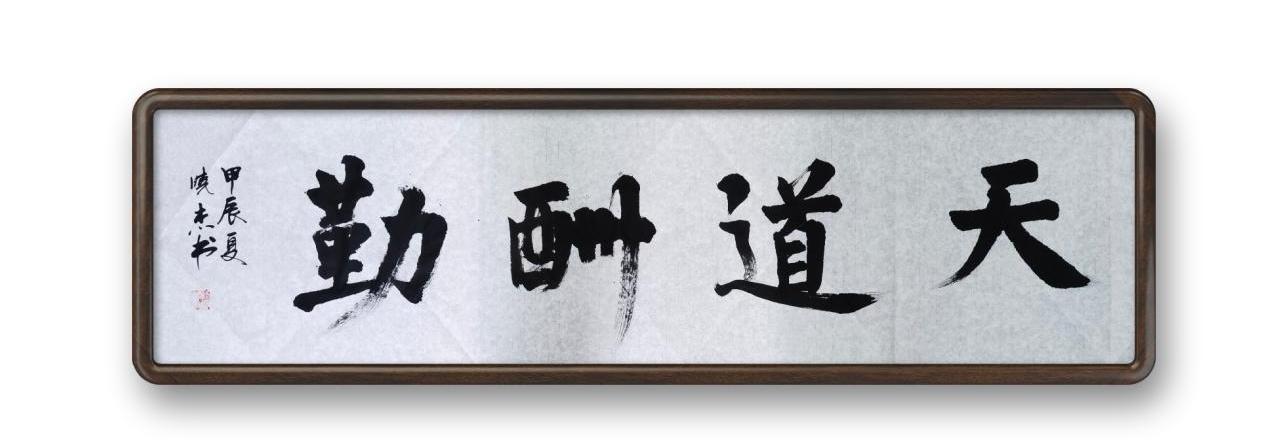 天道酬勤
甲辰夏
晓杰书